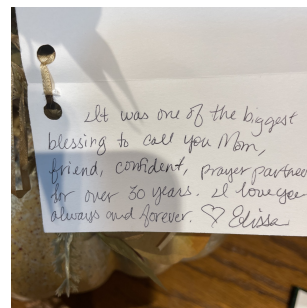 It was one of the biggest
blessing to call you Mom,
friend, confident, prayer partner
for over 30 years. I love you
always and forever. ♡ Elissa